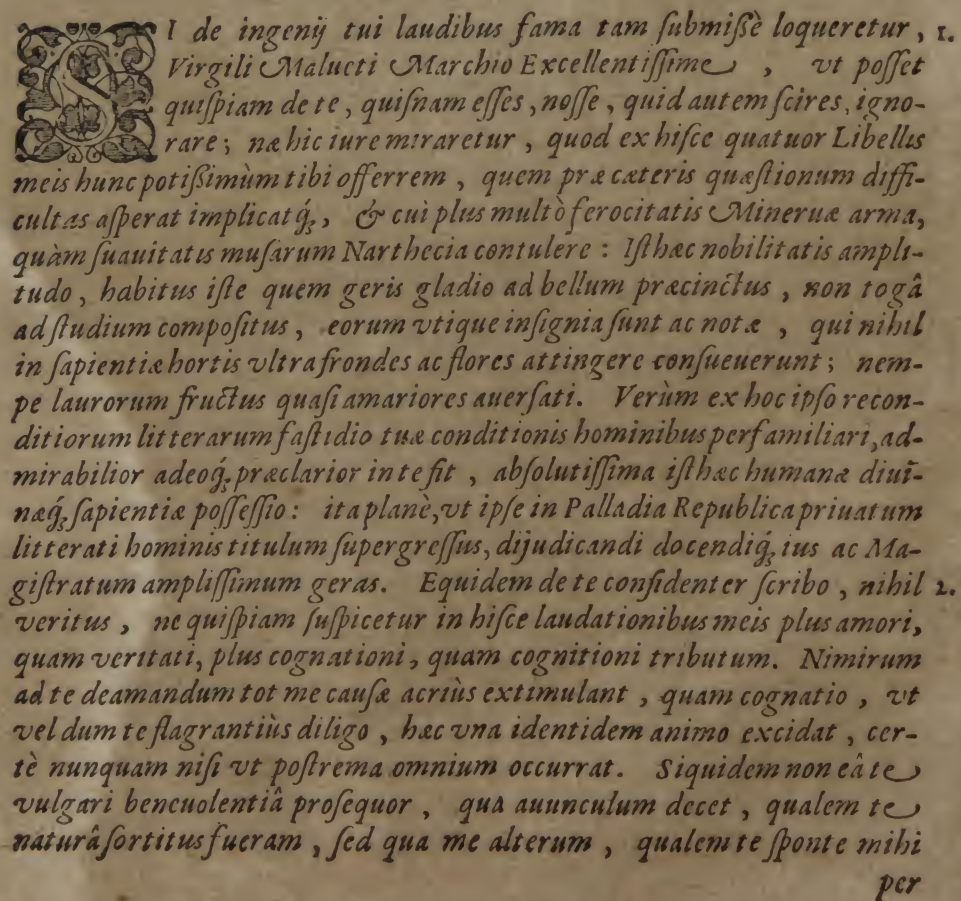 SI de ingenij tui laudibus fama tam ſubmiſsè loqueretur, 1.
Virgili Malueti Marchio Excellentiſſime, vt poſſet
quiſpiam de te, quiſnam eſſes, noſſe, quid autem ſcires, igno-
rare; næ hic iure miraretur, quod ex hiſce quatuor Libellis
meis hunc potiſsimùm tibi offerrem, quem præ cæteris quæſtionum diffi-
cultas aſperat implicatq́;, & cui plus multò ferocitatis Mineruæ arma,
quàm ſuauitatis muſarum Narthecia contulere: Iſthæc nobilitatis ampli-
tudo, habitus iſte quem geris gladio ad bellum præcinctus, non togâ
ad ſtudium compoſitus, eorum vtique inſignia ſunt ac notæ, qui nihil
in ſapientiæ hortis vltra frondes ac flores attingere conſueuerunt; nem-
pe laurorum fructus quaſi amariores auerſati. Verùm ex hoc ipſo recon-
ditiorum litterarum faſtidio tuæ conditionis hominibus perfamiliari, ad-
mirabilior adeoq́; præclarior in te fit, abſolutiſſima iſthæc humanæ diui-
næq́; ſapientiæ poſſeſſio: ita planè, vt ipſe in Palladia Republica priuatum
litterati hominis titulum ſupergreſſus, dijudicandi docendiq́; ius ac Ma-
giſtratum ampliſſimum geras. Equidem de te confidenter ſcribo, nihil 2.
veritus, ne quiſpiam ſuſpicetur in hiſce laudationibus meis plus amori,
quam veritati, plus cognationi, quam cognitioni tributum. Nimirum
ad te deamandum tot me cauſæ acriùs extimulant, quam cognatio, vt
vel dum te flagrantiùs diligo, hæc vna identidem animo excidat, cer-
tè nunquam niſi vt poſtrema omnium occurrat. Siquidem non eâ te
vulgari beneuolentiâ proſequor, qua auunculum decet, qualem te
naturâ ſortitus fueram, ſed qua me alterum, qualem te ſponte mihi
per